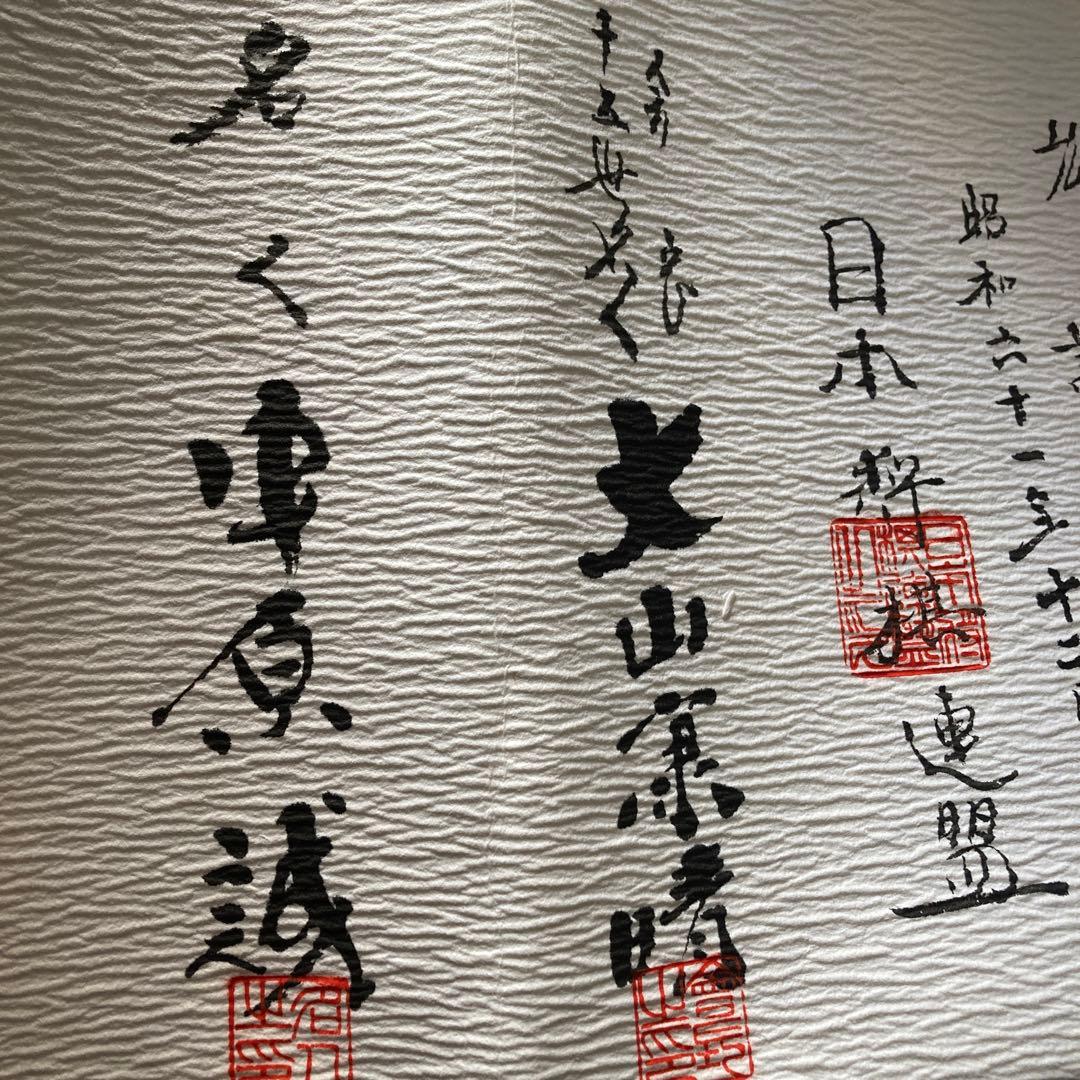 昭和六十一年十二月
日本将棋連盟
会長
十五世名人 大山康晴
名人 中原誠